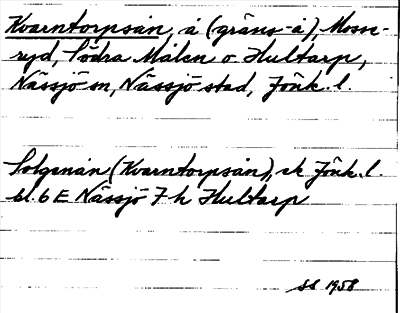 Kvarntorpsån, å (gräns-å), Mosse-
ryd, Södra Målen o Hultarp,
Nässjö sn, Nässjö stad, Jönk. l.
Solgenån (Kvarntorpsån), ek Jönk. l.
bl. 6 E Nässjö 7 h Hultarp
1958